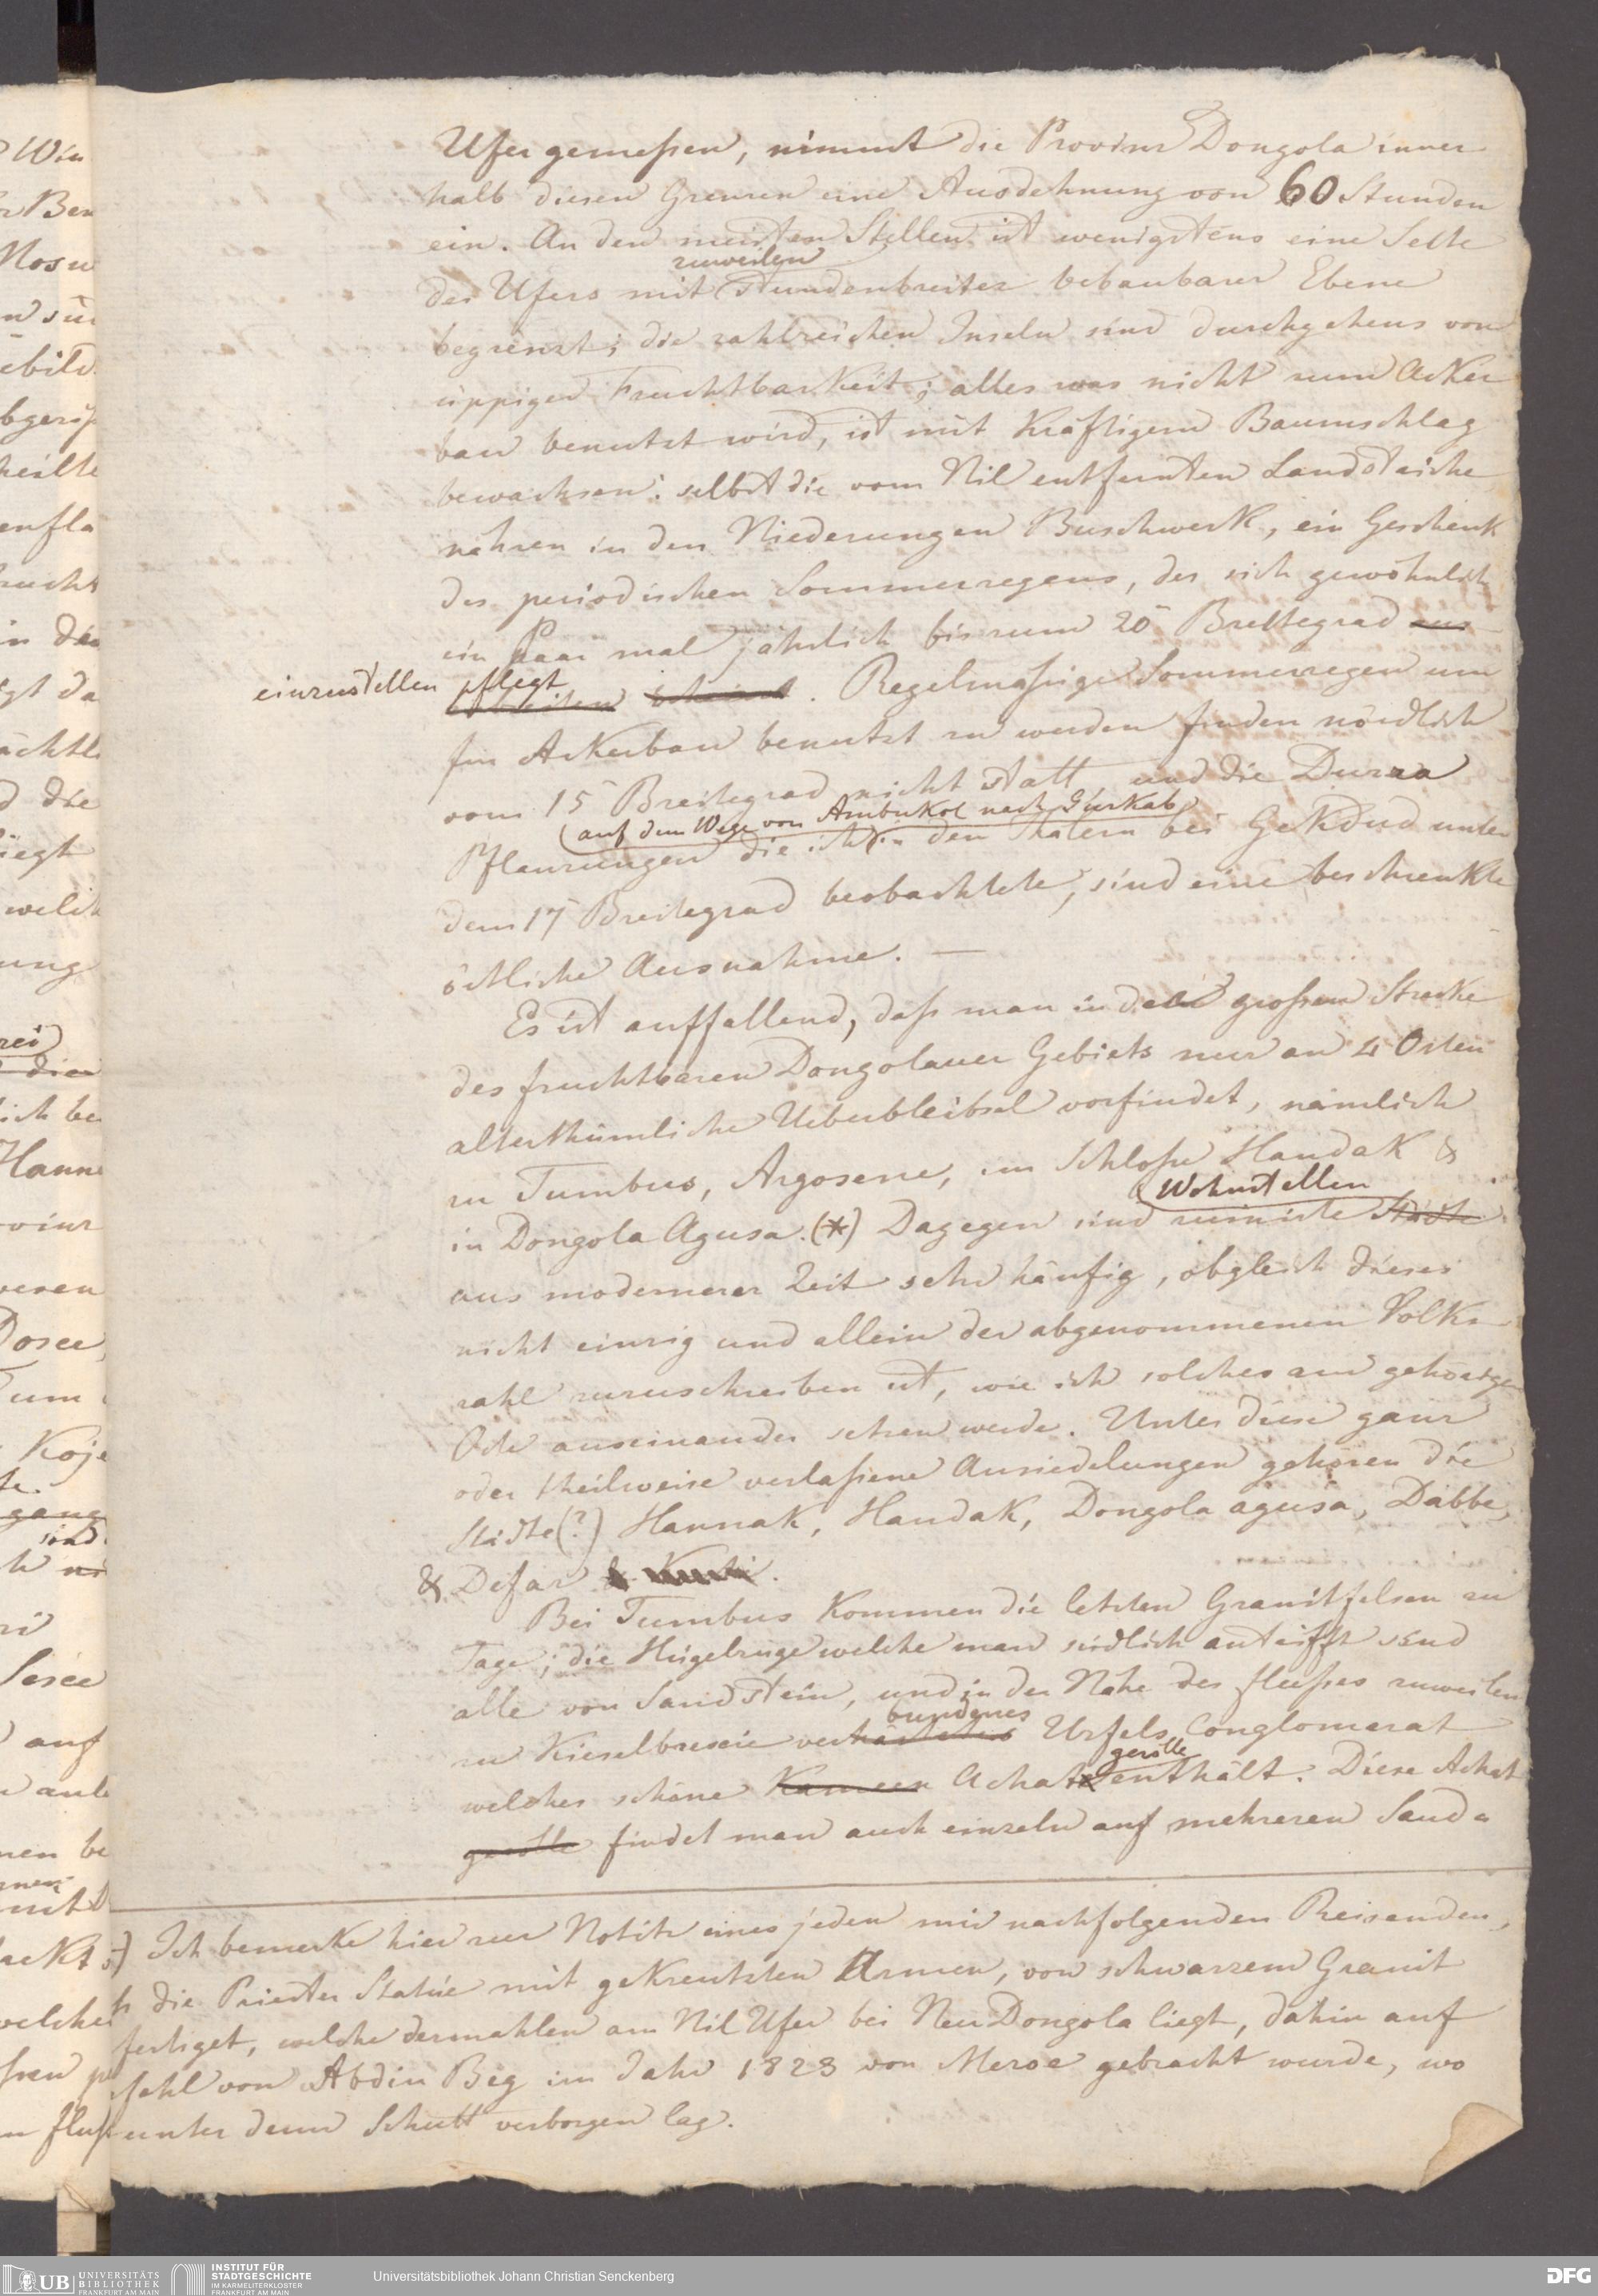 Ufer gemeßen, nimmt die Provinz Dongola inner
halb diesen Grenzen eine Ausdehnung von 60 Stunden
ein. An den meisten Stellen ist wenigstens eine Seite
zuweilen
des Ufers mit stundenbreiter bebaubarer Ebene
begrenzt; die zahlreichen Inseln sind durchgehens von
üppiger Fruchtbarkeit; alles was nicht zum Acker
bau benutzt wird, ist mit kräftigem Baumschlag
bewachsen; selbst die vom Nil entfernten Landstriche
nähren in den Niederungen Buschwerk, ein Geschenk
des periodischen Sommerregens, der sich gewöhnlich
ein Paar mal jährlich bis zum 20 Breitegrad
einzustellen pflegt
. Regelmäßige Sommerregen um
für Ackerbau benutzt zu werden finden nördlich
vom 15 Breitegrad nicht statt, und die Durra
auf dem Wege von Ambukol nach Gurkab
Pflanzungen die ich in den Thälern bei Gekdud unter
dem 17 Breitegrad beobachtete, sind eine beschrenkte
örtliche Ausnahme. —
Es ist auffallend, daß man in der großen Strecke
des fruchtbaren Dongolauer Gebiets nur an 4 Orten
alterthümliche Ueberbleibsel vorfindet, nämlich
zu Tumbus, Argosene, im Schloße Handak &
Wohnstellen
in Dongola Agusa. (*) Dagegen sind ruinirte Städte
aus modernerer Zeit sehr häufig, obgleich dieses
nicht einzig und allein der abgenommenen Volks
zahl zuzuschreiben ist, wie ich solches am gehörigen
Orte auseinander setzen werde. Unter diese ganz
oder theilweise verlaßene Ansiedelungen gehören die
Städte (?) Hannak, Handak, Dongola agusa, Dabbe,
& Defar &
Bei Tumbus kommen die letzten Granitfelsen zu
Tage; die Hügelzüge welche man südlich antrifft sind
alle von Sandstein, und in der Nähe des flußes zuweilen
bundenes
zu Kieselbrescie verhärtetes Urfels Conglomerat
gerölle
welches schöne Achat enthält. Diese Achat
gerölle findet man auch einzeln auf mehreren Sand
) Ich bemerke hier zur Notitz eines jeden mir nachfolgenden Reisenden,
ß die Priester Statüe mit gekreutzten Armen, von schwarzem Granit
fertiget, welche dermahlen am Nil Ufer bei Neu Dongola liegt, dahin auf
fehl von Abdin Beg im Jahr 1823 von Meroe gebracht wurde, wo
unter dem Schutt verborgen lag.
UB UNIVERSITÄTS
BIBLIOTHEK
FRANKFURT AM MAIN
INSTITUT FÜR
STADTGESCHICHTE
IM KARMELITERKLOSTER
FRANKFURT AM MAIN
Universitätsbibliothek Johann Christian Senckenberg
DFG